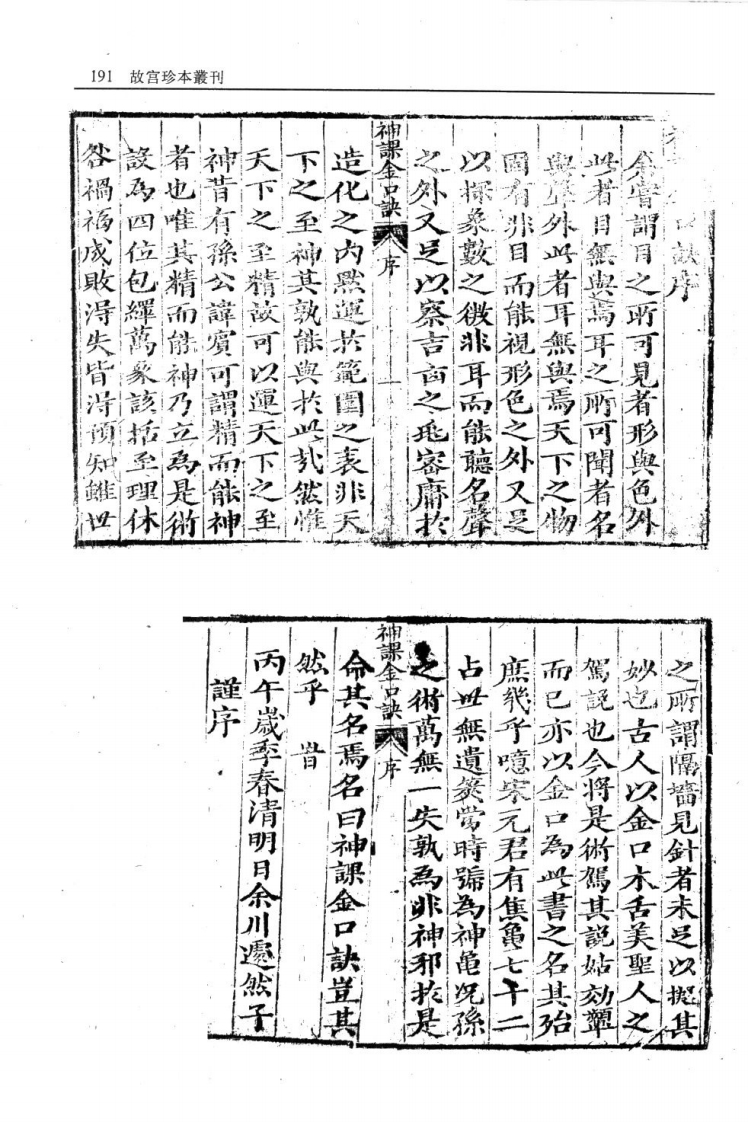 191 故宫珍本叢刊
口訣序
余嘗謂目之所可見者形與色外
此者目無與焉耳之所可聞者名
與聲外此者耳無與焉天下之物
固有非目而能視形色之外又足
以探象數之微非耳而能聽名聲
之外又足以察吉凶之兆審庸於
神課金口訣 序 一
造化之内默運於範圍之表非天
下之至神其孰能與於此哉然惟
天下之至精故可以運天下之至
神昔有孫公諱賓可謂精而能神
者也唯其精而能神乃立為是術
設為四位包繹萬象該括至理休
咎禍福成敗得失皆得預知雖世
之所謂隔墻見針者未足以擬其
妙也古人以金口木舌美聖人之
駕説也今將是術駕其説姑効顰
而已亦以金口為此書之名其殆
庶幾乎噫宋元君有焦龜七十二
占世無遺筴當時號為神龜况孫
之術萬無一失孰為非神邪於是
神課金口訣 序
命其名焉名曰神課金口訣豈其
然乎 旹
丙午歲季春清明日余川遯然子
謹序